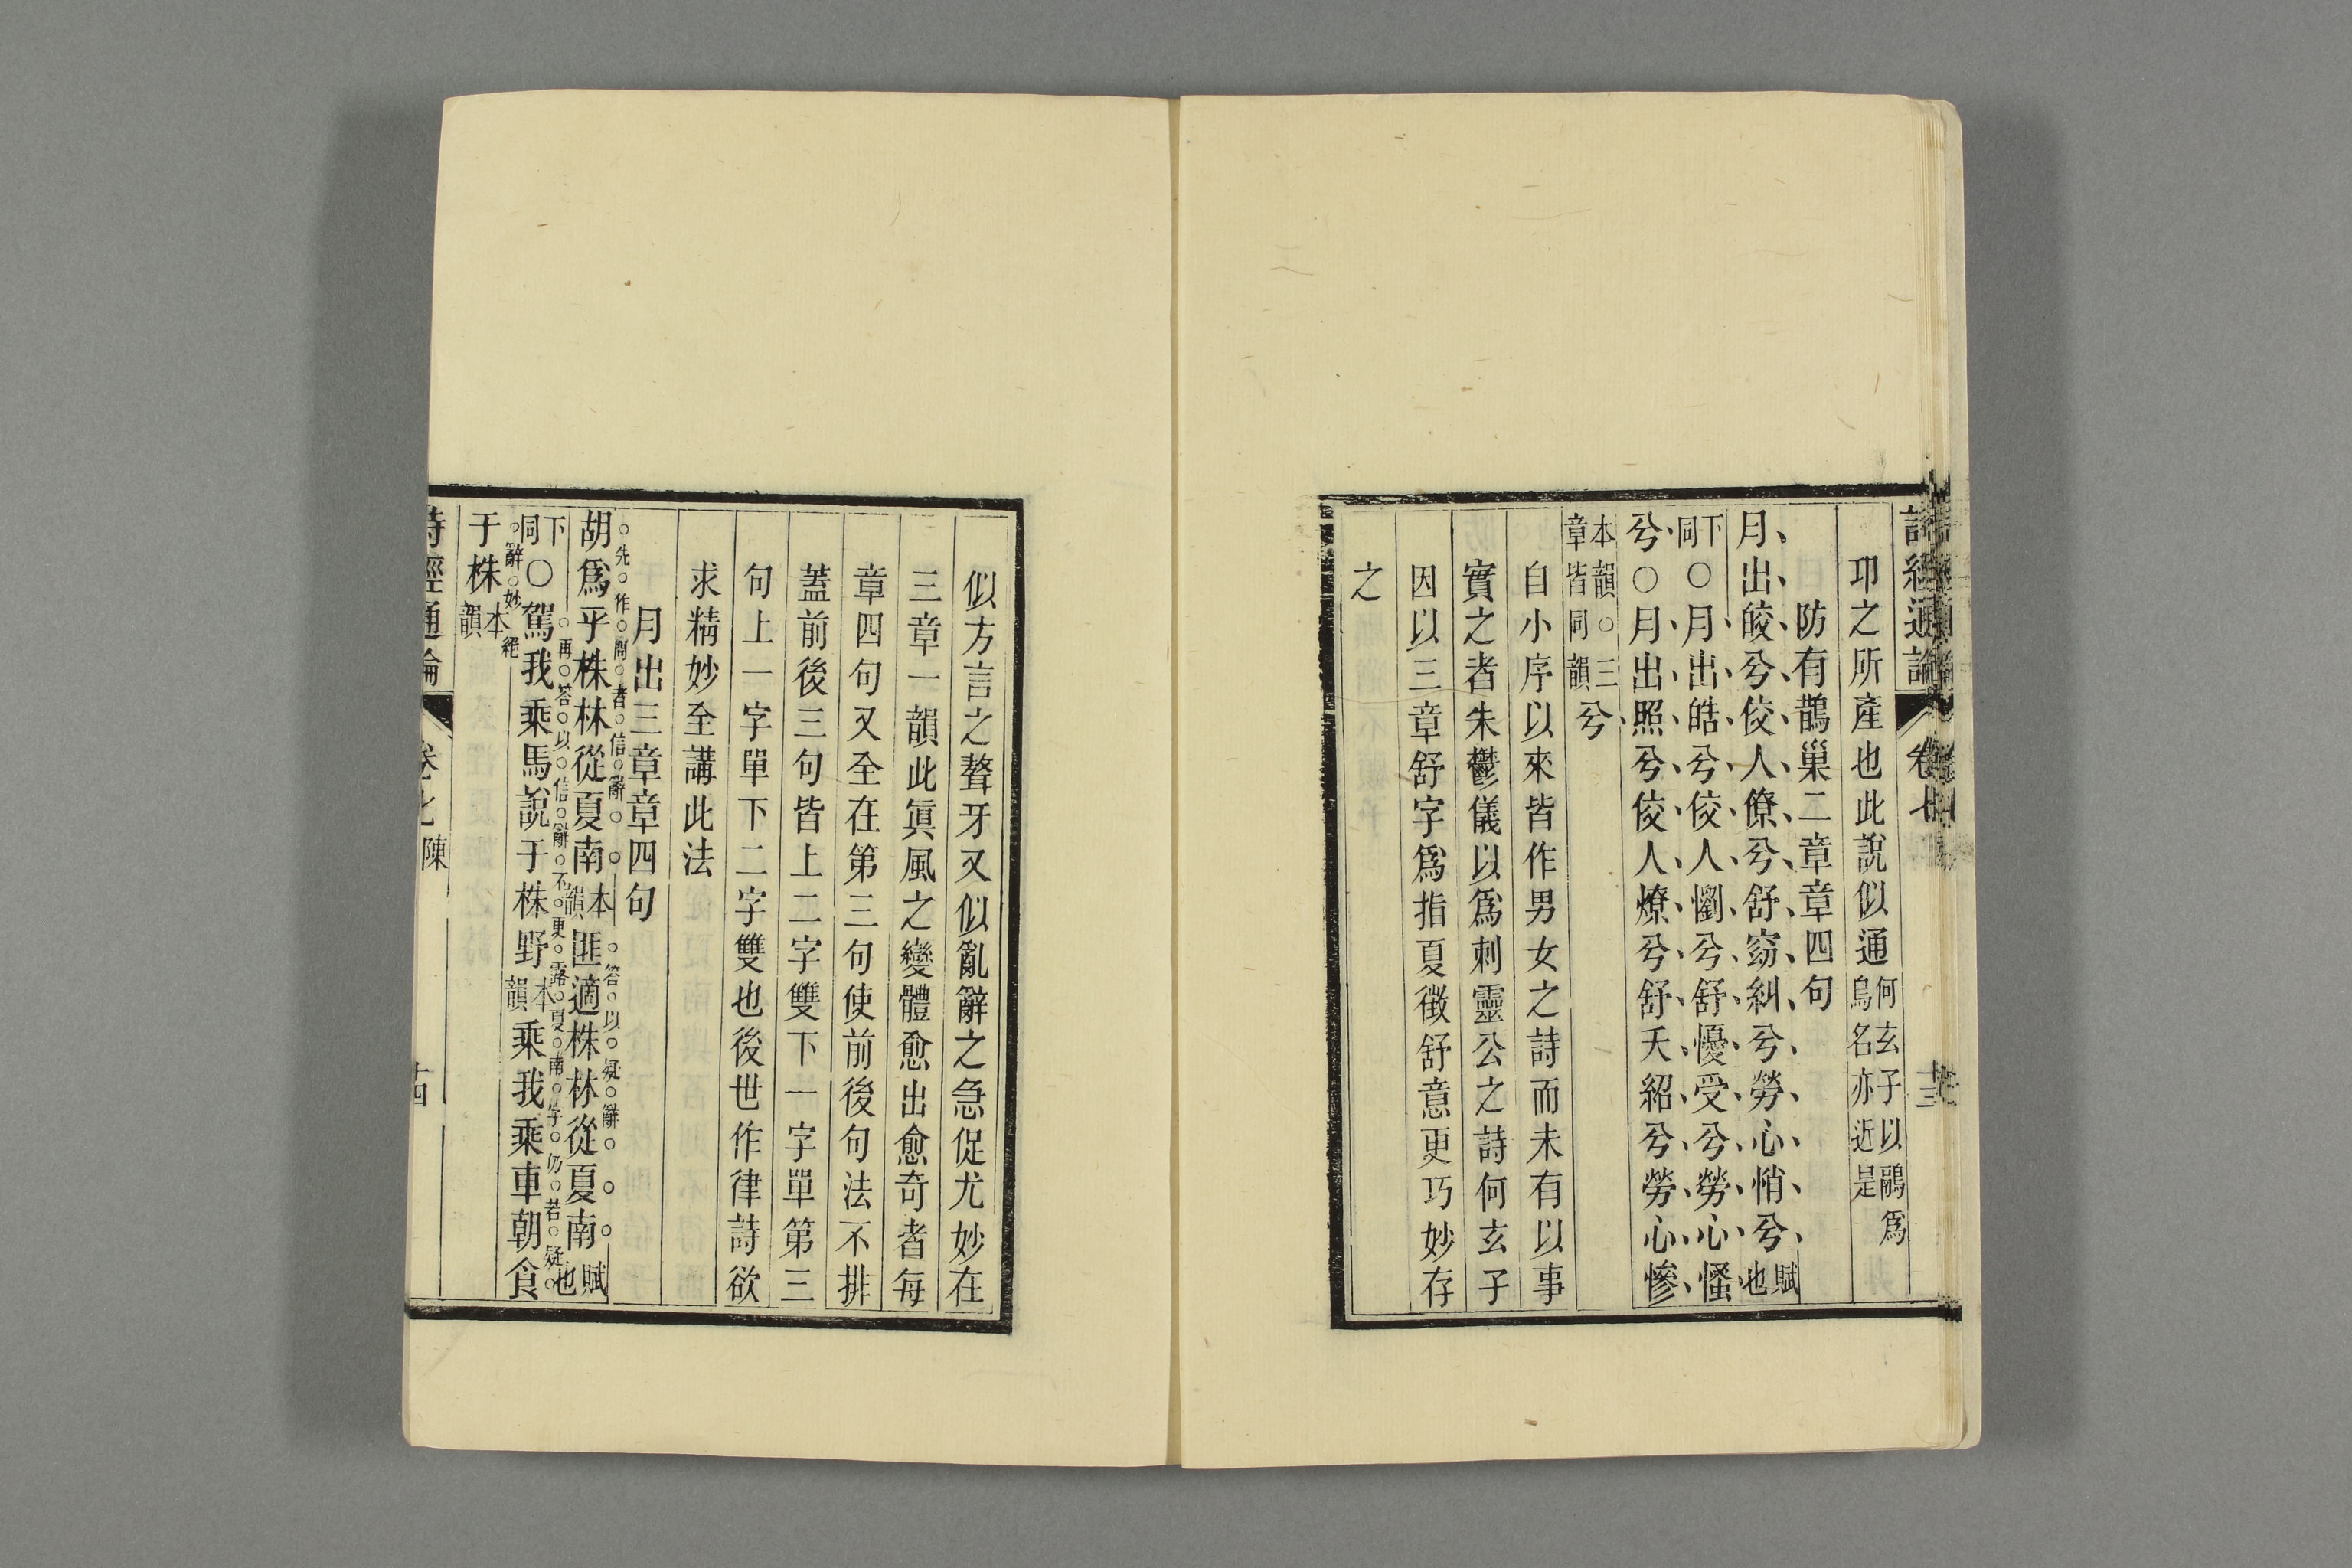 詩經通論 卷七 十三
卭之所產也此說似通何玄子以鷊爲鳥名亦近是
防有鵲巢二章章四句
月出皎兮佼人僚兮舒窈糾兮勞心悄兮賦也
下同○月出皓兮佼人懰兮舒懮受兮勞心慅
兮○月出照兮佼人燎兮舒夭紹兮勞心慘
兮本韻○三章皆同韻
自小序以來皆作男女之詩而未有以事
實之者朱鬱儀以爲刺靈公之詩何玄子
因以三章舒字爲指夏徵舒意更巧妙存
之
似方言之聱牙又似亂辭之急促尤妙在
三章一韻此眞風之變體愈出愈奇者每
章四句又全在第三句使前後句法不排
蓋前後三句皆上二字雙下一字單第三
句上一字單下二字雙也後世作律詩欲
求精妙全講此法
月出三章章四句
先作問者信辭
答以疑辭
胡爲乎株林從夏南本韻匪適株林從夏南賦也
再答以信辭不更露夏南字仍若疑
下同○駕我乘馬說于株野本韻乘我乘車朝食
辭妙絕
于株本韻
詩經通論 卷七陳 十四